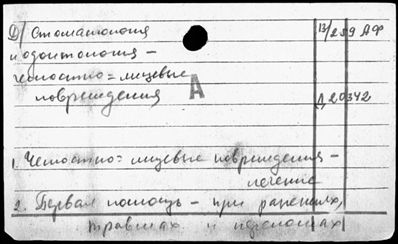 Д/ Стоматология 13/259 АФ
и одонтология –
челюстно=лицевые
повреждения
А
Д 20342
1. Челюстно=лицевые повреждения –
лечение
2. Первая помощь – при ранениях,
травмах и переломах